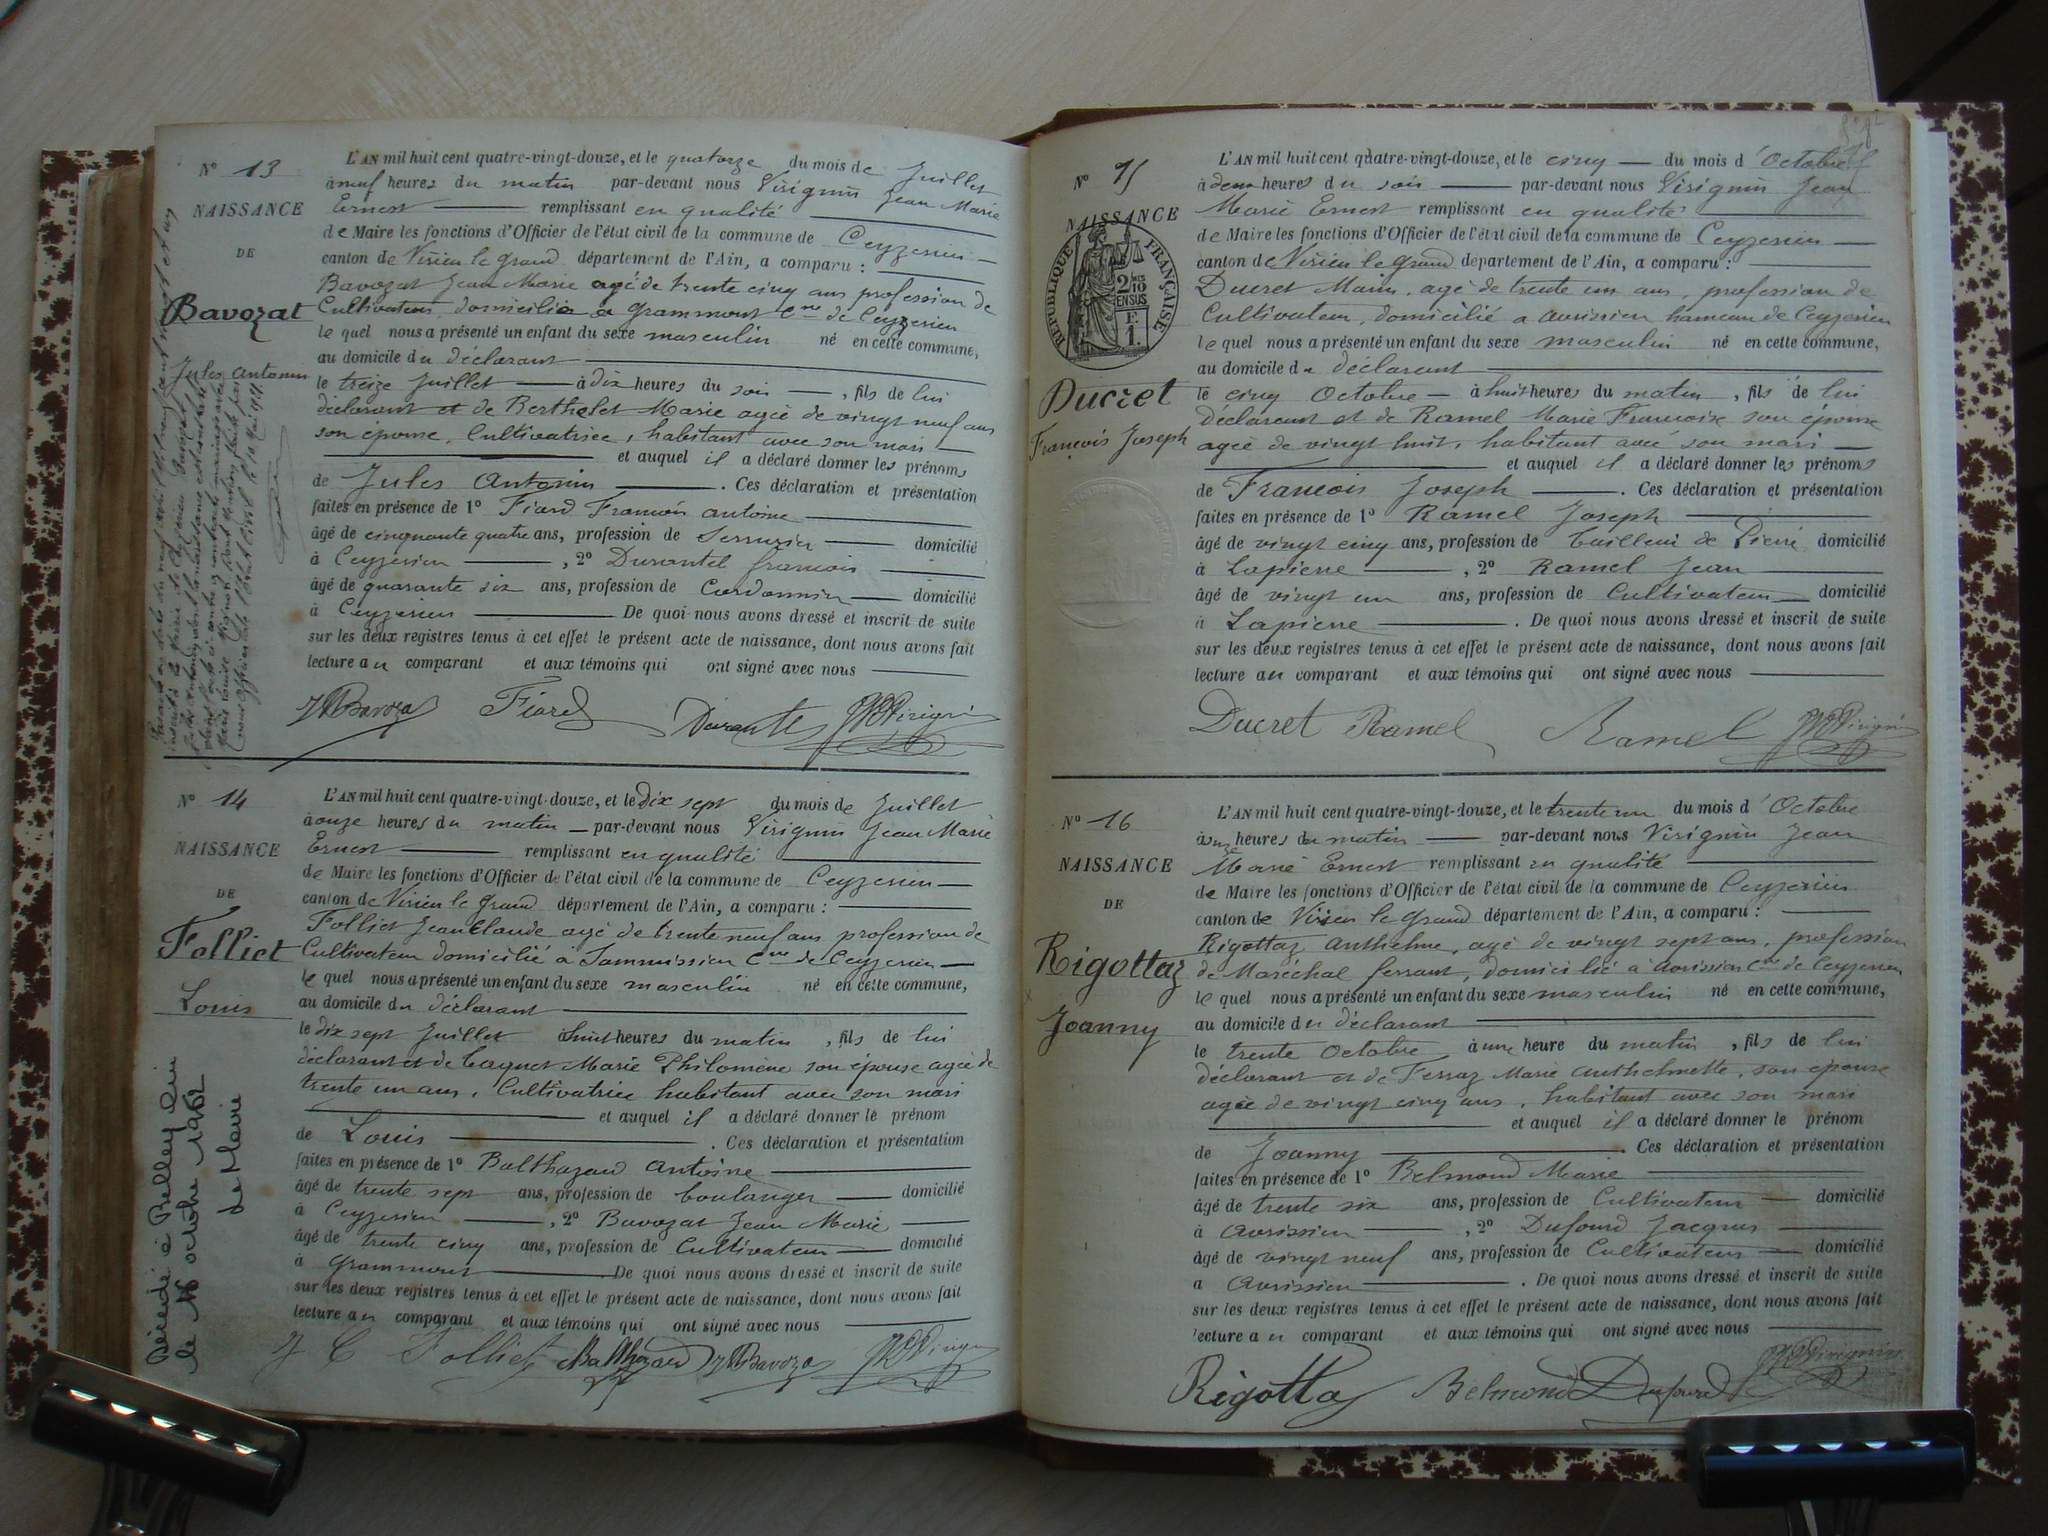 N° 13
NAISSANCE
DE
Bavozat
Jules Antonin
L'AN mil huit cent quatre-vingt-douze, et le quatorze du mois de Juillet
à neuf heures du matin par-devant nous Virignin Jean Marie
Ernest remplissant en qualité
de Maire les fonctions d'Officier de l'état civil de la commune de Ceyzerieu
canton de Virieu le Grand département de l'Ain, a comparu :
Bavozat Jean Marie agé de trente cinq ans profession de
Cultivateur, domicilié à Grammont Cne de Ceyzerieu
le quel nous a présenté un enfant du sexe masculin né en cette commune,
au domicile du déclarant
le treize Juillet à dix heures du soir, fils de lui
déclarant et de Berthelet Marie agée de vingt neuf ans
son épouse, Cultivatrice, habitant avec son mari
et auquel il a déclaré donner les prénoms
de Jules Antonin. Ces déclaration et présentation
faites en présence de 1° Fiard François Antoine
âgé de cinquante quatre ans, profession de Serrurier domicilié
à Ceyzerieu, 2° Durantel François
âgé de quarante six ans, profession de Cordonnier domicilié
à Ceyzerieu De quoi nous avons dressé et inscrit de suite
sur les deux registres tenus à cet effet le présent acte de naissance, dont nous avons fait
lecture au comparant et aux témoins qui ont signé avec nous
JMBavoza Fiard Durantel JMEVirignin
N° 14
NAISSANCE
DE
Folliet
Louis
Décédé à Belley Ain
le 16 octobre 1962
de Mairie
L'AN mil huit cent quatre-vingt-douze, et le dix sept du mois de Juillet
à onze heures du matin par-devant nous Virignin Jean Marie
Ernest remplissant en qualité
de Maire les fonctions d'Officier de l'état civil de la commune de Ceyzerieu
canton de Virieu le Grand département de l'Ain, a comparu :
Folliet Jean Claude agé de trente neuf ans profession de
Cultivateur domicilié à Sammissieu Cne de Ceyzerieu
le quel nous a présenté un enfant du sexe masculin né en cette commune,
au domicile du déclarant
le dix sept Juillet à huit heures du matin, fils de lui
déclarant et de Caquet Marie Philomène son épouse agée de
trente un ans, Cultivatrice habitant avec son mari
et auquel il a déclaré donner le prénom
de Louis. Ces déclaration et présentation
faites en présence de 1° Balthazard Antoine
âgé de trente sept ans, profession de boulanger domicilié
à Ceyzerieu, 2° Bavozat Jean Marie
âgé de trente cinq ans, profession de Cultivateur domicilié
à Grammont De quoi nous avons dressé et inscrit de suite
sur les deux registres tenus à cet effet le présent acte de naissance, dont nous avons fait
lecture au comparant et aux témoins qui ont signé avec nous
J C Folliet Balthazard JMBavoza JMEVirignin
N° 15
NAISSANCE
RÉPUBLIQUE FRANÇAISE
2/10 EN SUS
F. 1.
Ducret
François Joseph
L'AN mil huit cent quatre-vingt-douze, et le cinq du mois d'Octobre
à deux heures du soir par-devant nous Virignin Jean
Marie Ernest remplissant en qualité
de Maire les fonctions d'Officier de l'état civil de la commune de Ceyzerieu
canton de Virieu le Grand département de l'Ain, a comparu :
Ducret Marin, agé de trente un ans, profession de
Cultivateur, domicilié à Avrissieu hameau de Ceyzerieu
le quel nous a présenté un enfant du sexe masculin né en cette commune,
au domicile du déclarant
le cinq Octobre à huit heures du matin, fils de lui
déclarant et de Ramel Marie Francoise son épouse
agée de vingt huit, habitant avec son mari
et auquel il a déclaré donner les prénoms
de François Joseph. Ces déclaration et présentation
faites en présence de 1° Ramel Joseph
âgé de vingt cinq ans, profession de Tailleur de Pierre domicilié
à Lapierre, 2° Ramel Jean
âgé de vingt un ans, profession de Cultivateur domicilié
à Lapierre. De quoi nous avons dressé et inscrit de suite
sur les deux registres tenus à cet effet le présent acte de naissance, dont nous avons fait
lecture au comparant et aux témoins qui ont signé avec nous
Ducret Ramel Ramel JMEVirignin
N° 16
NAISSANCE
DE
Rigottaz
Joanny
L'AN mil huit cent quatre-vingt-douze, et le trente un du mois d'Octobre
à onze heures du matin par-devant nous Virignin Jean
Marie Ernest remplissant en qualité
de Maire les fonctions d'Officier de l'état civil de la commune de Ceyzerieu
canton de Virieu le Grand département de l'Ain, a comparu :
Rigottaz Anthelme, agé de vingt sept ans, profession
de Maréchal ferrant, domicilié à Avrissieu Cne de Ceyzerieu
le quel nous a présenté un enfant du sexe masculin né en cette commune,
au domicile du déclarant
le trente Octobre à une heure du matin, fils de lui
déclarant et de Ferraz Marie Anthelmette, son épouse
agée de vingt cinq ans, habitant avec son mari
et auquel il a déclaré donner le prénom
de Joanny. Ces déclaration et présentation
faites en présence de 1° Belmond Marie
âgé de trente six ans, profession de Cultivateur domicilié
à Avrissieu, 2° Dufourd Jacques
âgé de vingt neuf ans, profession de Cultivateur domicilié
a Avrissieu. De quoi nous avons dressé et inscrit de suite
sur les deux registres tenus à cet effet le présent acte de naissance, dont nous avons fait
lecture au comparant et aux témoins qui ont signé avec nous
Rigottaz Belmond Dufourd JMEVirignin